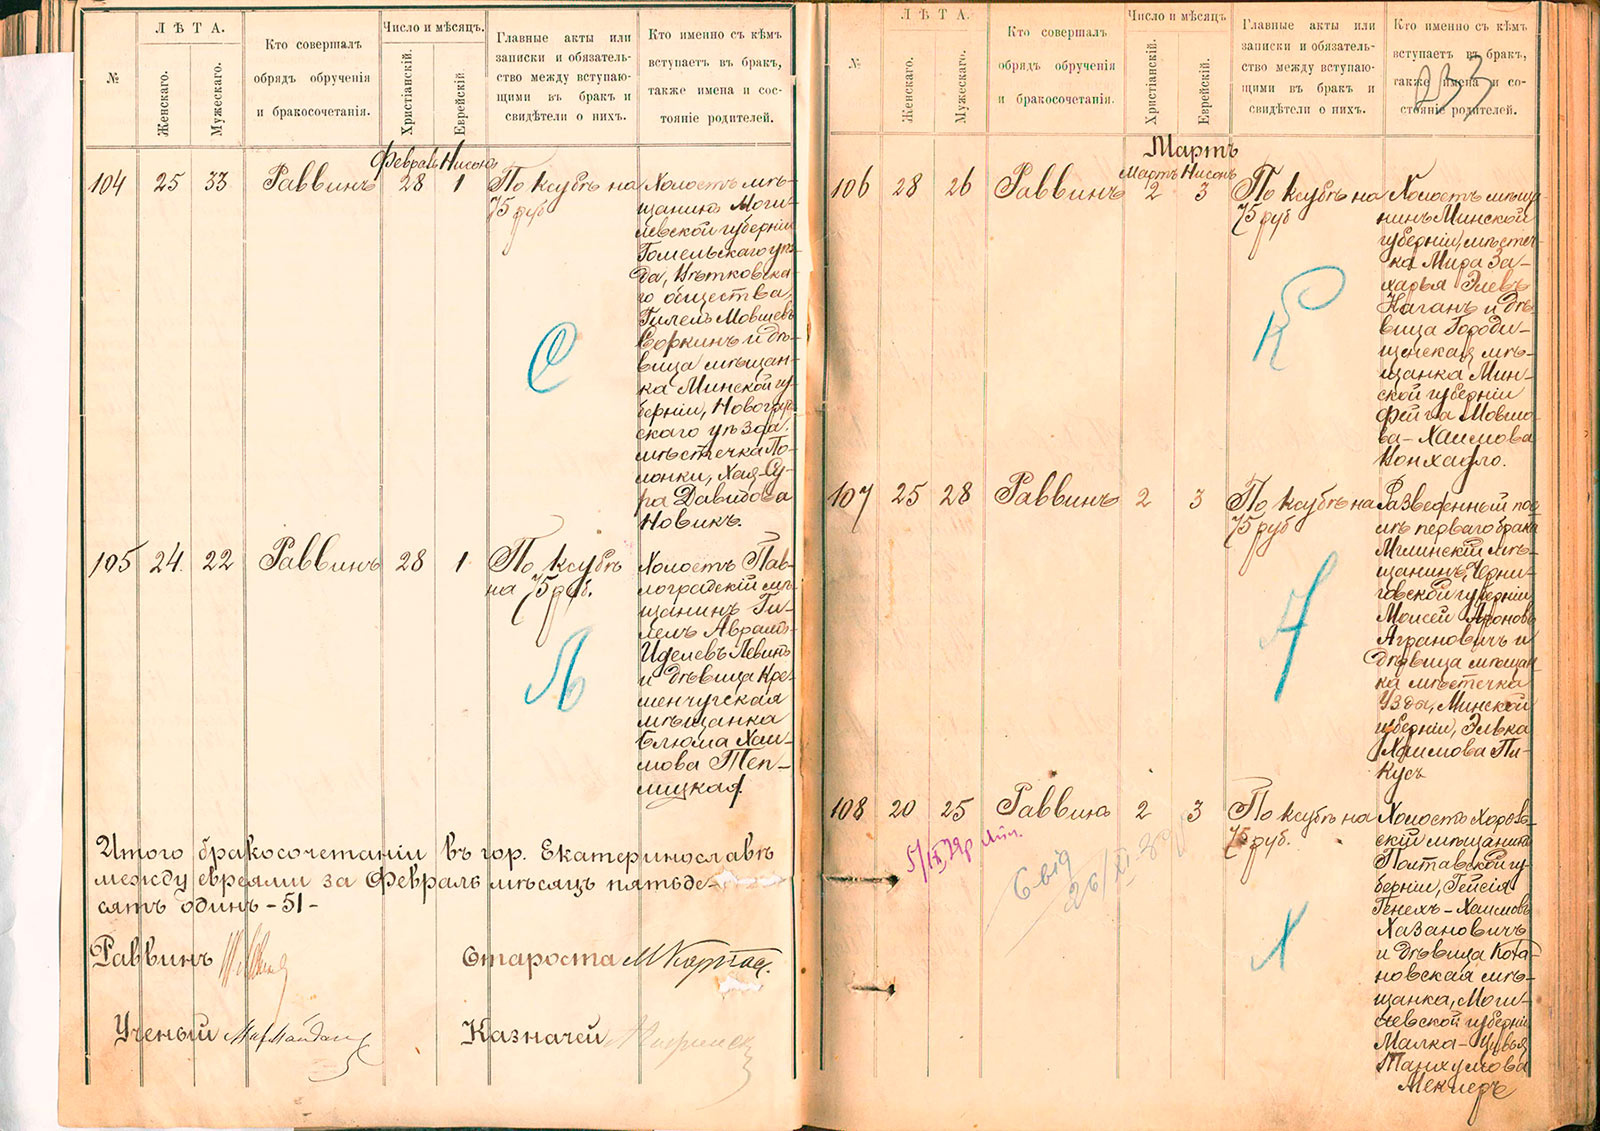 №
ЛѢТА.
Женскаго.
Мужескаго.
Кто совершалъ
обрядъ обрученія
и бракосочетанія.
Число и мѣсяцъ.
Христіанскій.
Еврейскій.
Главные акты или
записки и обязатель-
ство между вступаю-
щими въ бракъ и
свидѣтели о нихъ.
Кто именно съ кѣмъ
вступаетъ въ бракъ,
также имена и сос-
тояніе родителей.
Февраль Нисонъ
104 25 33 Раввинъ 28 1
По ксубѣ на
75 руб
Холостъ мѣ-
щанинъ Моги-
левской губерніи
Гомельскаго уѣз-
да, Вѣтковска-
го общества,
Гилель Мовшевъ
Соркинъ и дѣ-
вица мѣщан-
ка Минской гу-
берніи, Новогруд-
скаго уѣзда,
мѣстечка По-
лонки, Хая-Су-
ра Давидова
Новикъ.
С
105 24 22 Раввинъ 28 1
По ксубѣ
на 75 руб.
Холостъ Пав-
лоградскій мѣ-
щанинъ Ги-
лель Авраамъ-
Иделевъ Левинъ
и дѣвица Кре-
менчугская
мѣщанка
Блюма Хаи-
мова Теп-
лицкая.
Л
Итого бракосочетаніи въ гор. Екатеринославѣ
между евреями за Февраль мѣсяцъ пятьде-
сятъ одинъ - 51 -
Раввинъ
Староста М Карпас.
Ученый Мармайдан
Казначей
№
ЛѢТА.
Женскаго.
Мужескаго.
Кто совершалъ
обрядъ обрученія
и бракосочетанія.
Число и мѣсяцъ.
Христіанскій.
Еврейскій.
Главные акты или
записки и обязатель-
ство между вступаю-
щими въ бракъ и
свидѣтели о нихъ.
Кто именно съ кѣмъ
вступаетъ въ бракъ,
также имена и со-
стояніе родителей.
233
Мартъ
Мартъ Нисонъ
106 28 26 Раввинъ 2 3
По ксубѣ на
75 руб
Холостъ мѣща-
нинъ Минской
губерніи, мѣстеч-
ка Мира За-
харья Элевъ
Каганъ и дѣ-
вица Городи-
щенская мѣ-
щанка Мин-
ской губерніи
Фейга Мовшо-
ва-Хаимова
Конхадло.
К
107 25 28 Раввинъ 2 3
По ксубѣ на
75 руб
Разведенный пос-
лѣ перваго брака
Мглинскій мѣ-
щанинъ, Черни-
говской губерніи
Моисей Ароновъ
Аграновичъ и
дѣвица мѣщан-
ка мѣстечка
Узды, Минской
губерніи, Элька
Хаимова Пи-
кусъ
А
108 20 25 Раввинъ 2 3
По ксубѣ на
75 руб.
Холостъ Хороль-
скій мѣщанинъ
Полтавской гу-
берніи, Гейсія
Генехъ-Хаимовъ
Хазановичъ
и дѣвица Коха-
новская мѣ-
щанка, Моги-
левской губерніи
Малка-Цивья
Танхумова
Меклеръ
Х